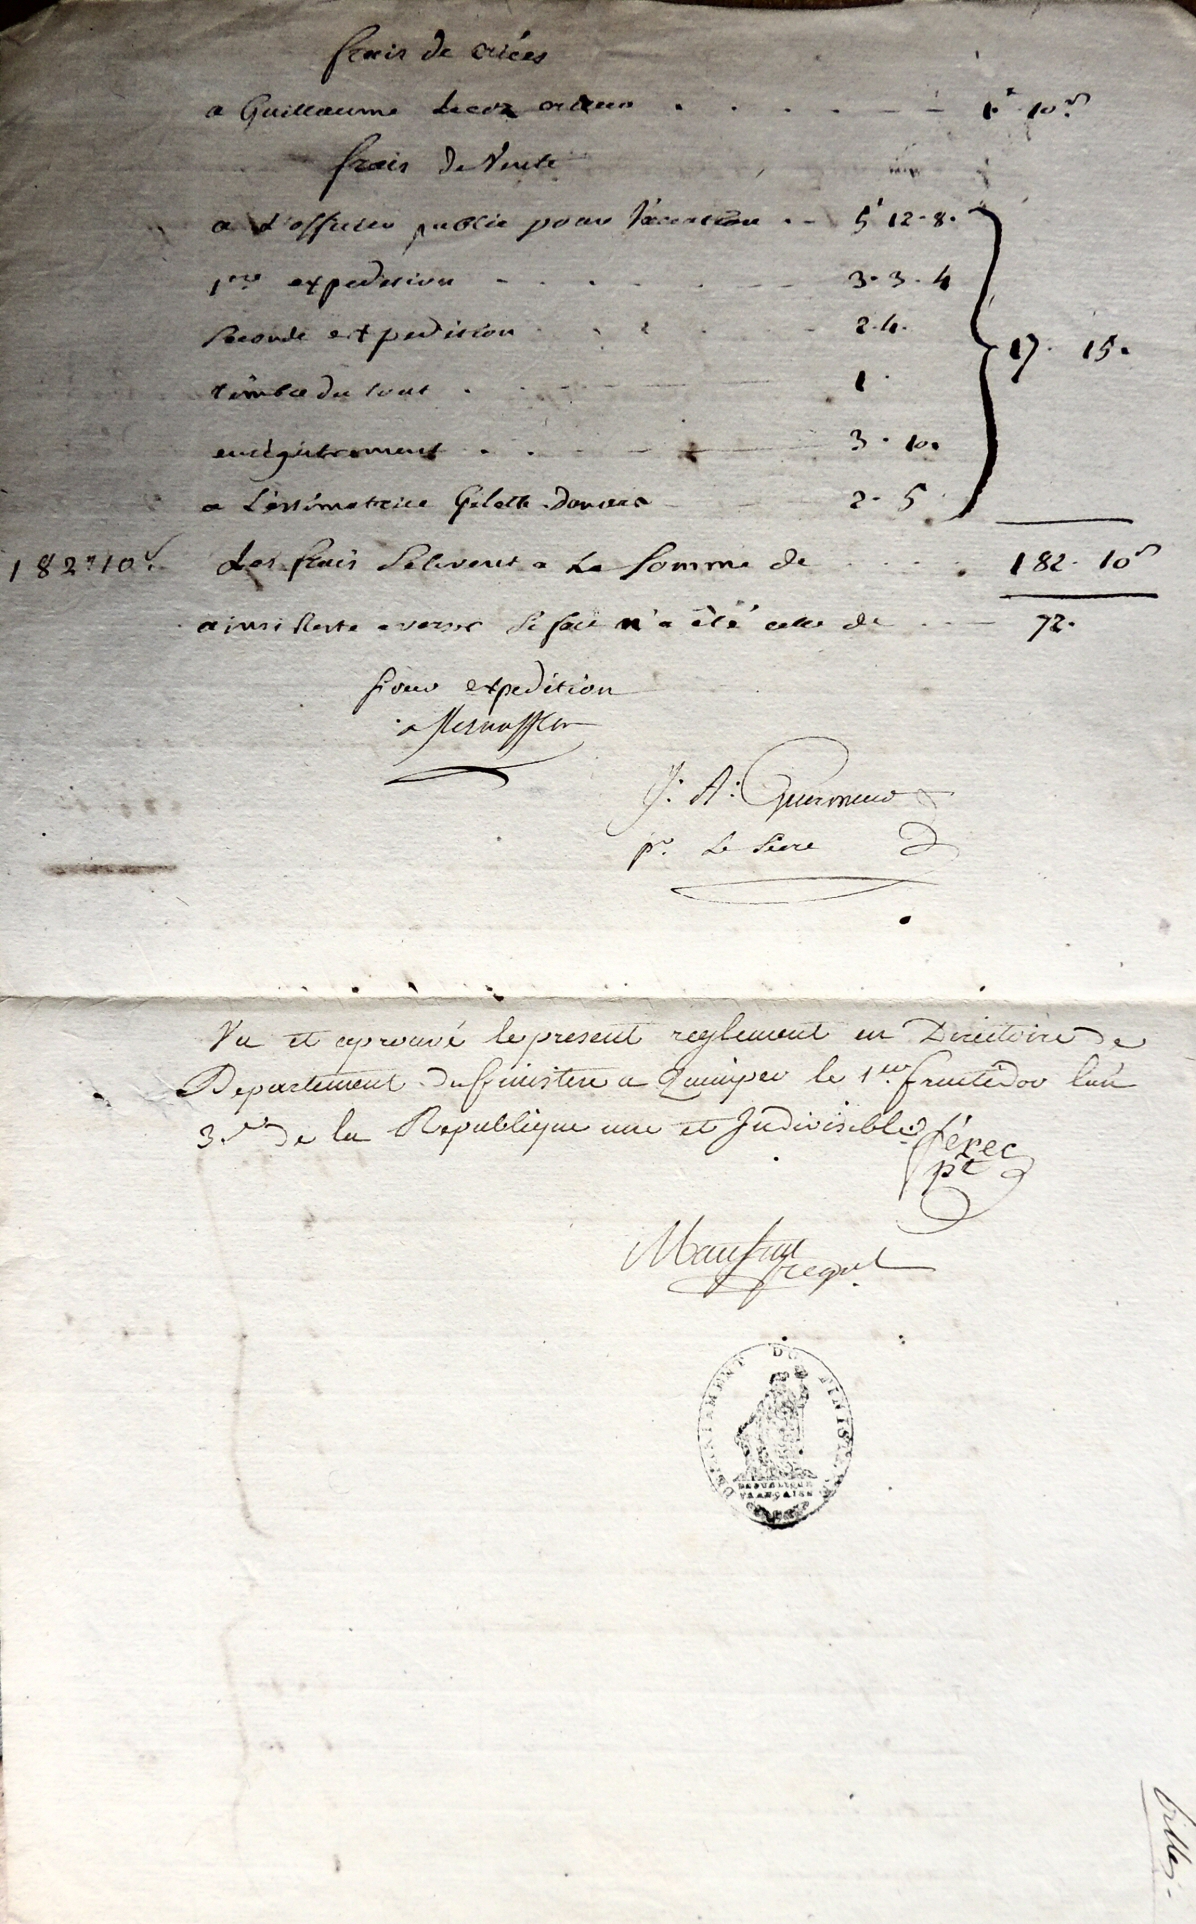 frais de criées
a Guillaume Lecoz crieur . . . . 1# 10s
frais de Vente
a L'officier public pour Vacation . . 5# 12. 8.
1ere expedition 3. 3. 4
Seconde expedition 2. 4.
timbre du tout 1.
enregistrement 3. 10.
a L'estimatrice Gilette 2. 5
17. 15.
182# 10s. Les frais S'elivent a La Somme de 182. 10s
ainsi Reste a verser Si fait n'a été celle de 72.
pour expedition
J: A: Guermeur
pr. Le Scere
Vu et aprouvé le present reglement en Directoire de
Departement du finistere a Quimper le 1er. fructidor l'an
3.e de la Republique une et Indivisible
férec
pt
DEPARTEMENT DU FINISTERE
REPUBLIQUE
FRANÇAISE